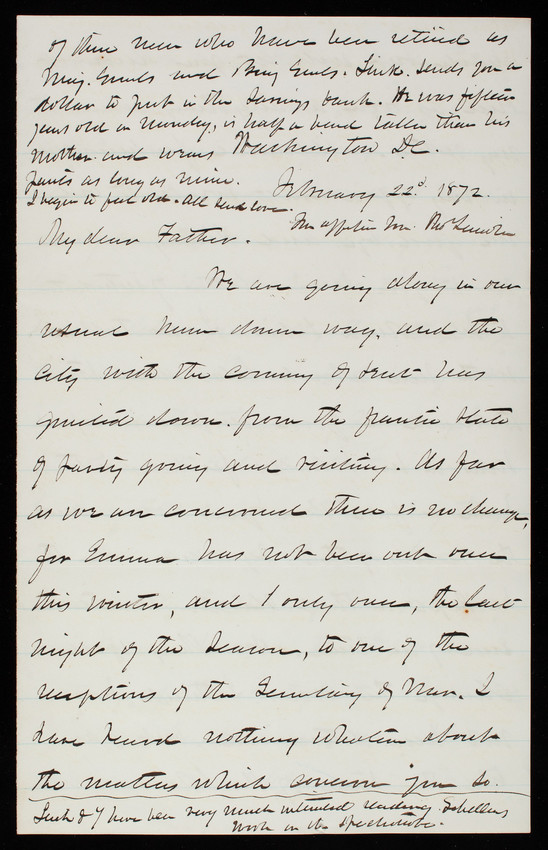 of those men who have been retired as
Maj. Genls and Brig Genls. Link. sends you a
dollar to put in the Savings bank. He was fifteen
years old on Monday, is half a head taller than his
mother and wears
pants as long as mine.
I begin to feel old. All send love.
Washington D.C.
February 22d 1872.
Yr affectin Son.
My dear Father.
We are going along in our
usual hum drum way, and the
city with the coming of Lent has
quieted down. from the frantic state
of party going and visiting. As far
as we are concerned there is no change,
for Emma has not been out once
this winter, and I only once, the last
night of the season, to one of the
receptions of the Secretary of War. I
have heard nothing whatever about
the matters which concern you so.
Link & I have been very much interested reading Schellens
work on the Spectroscope.